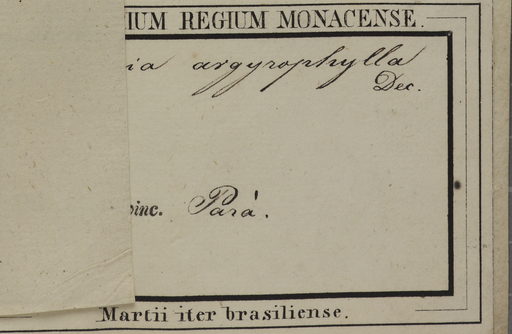 IUM REGIUM MONACENSE.
ia argyrophylla
Dec.
inc. Pará.
Martii iter brasiliense.